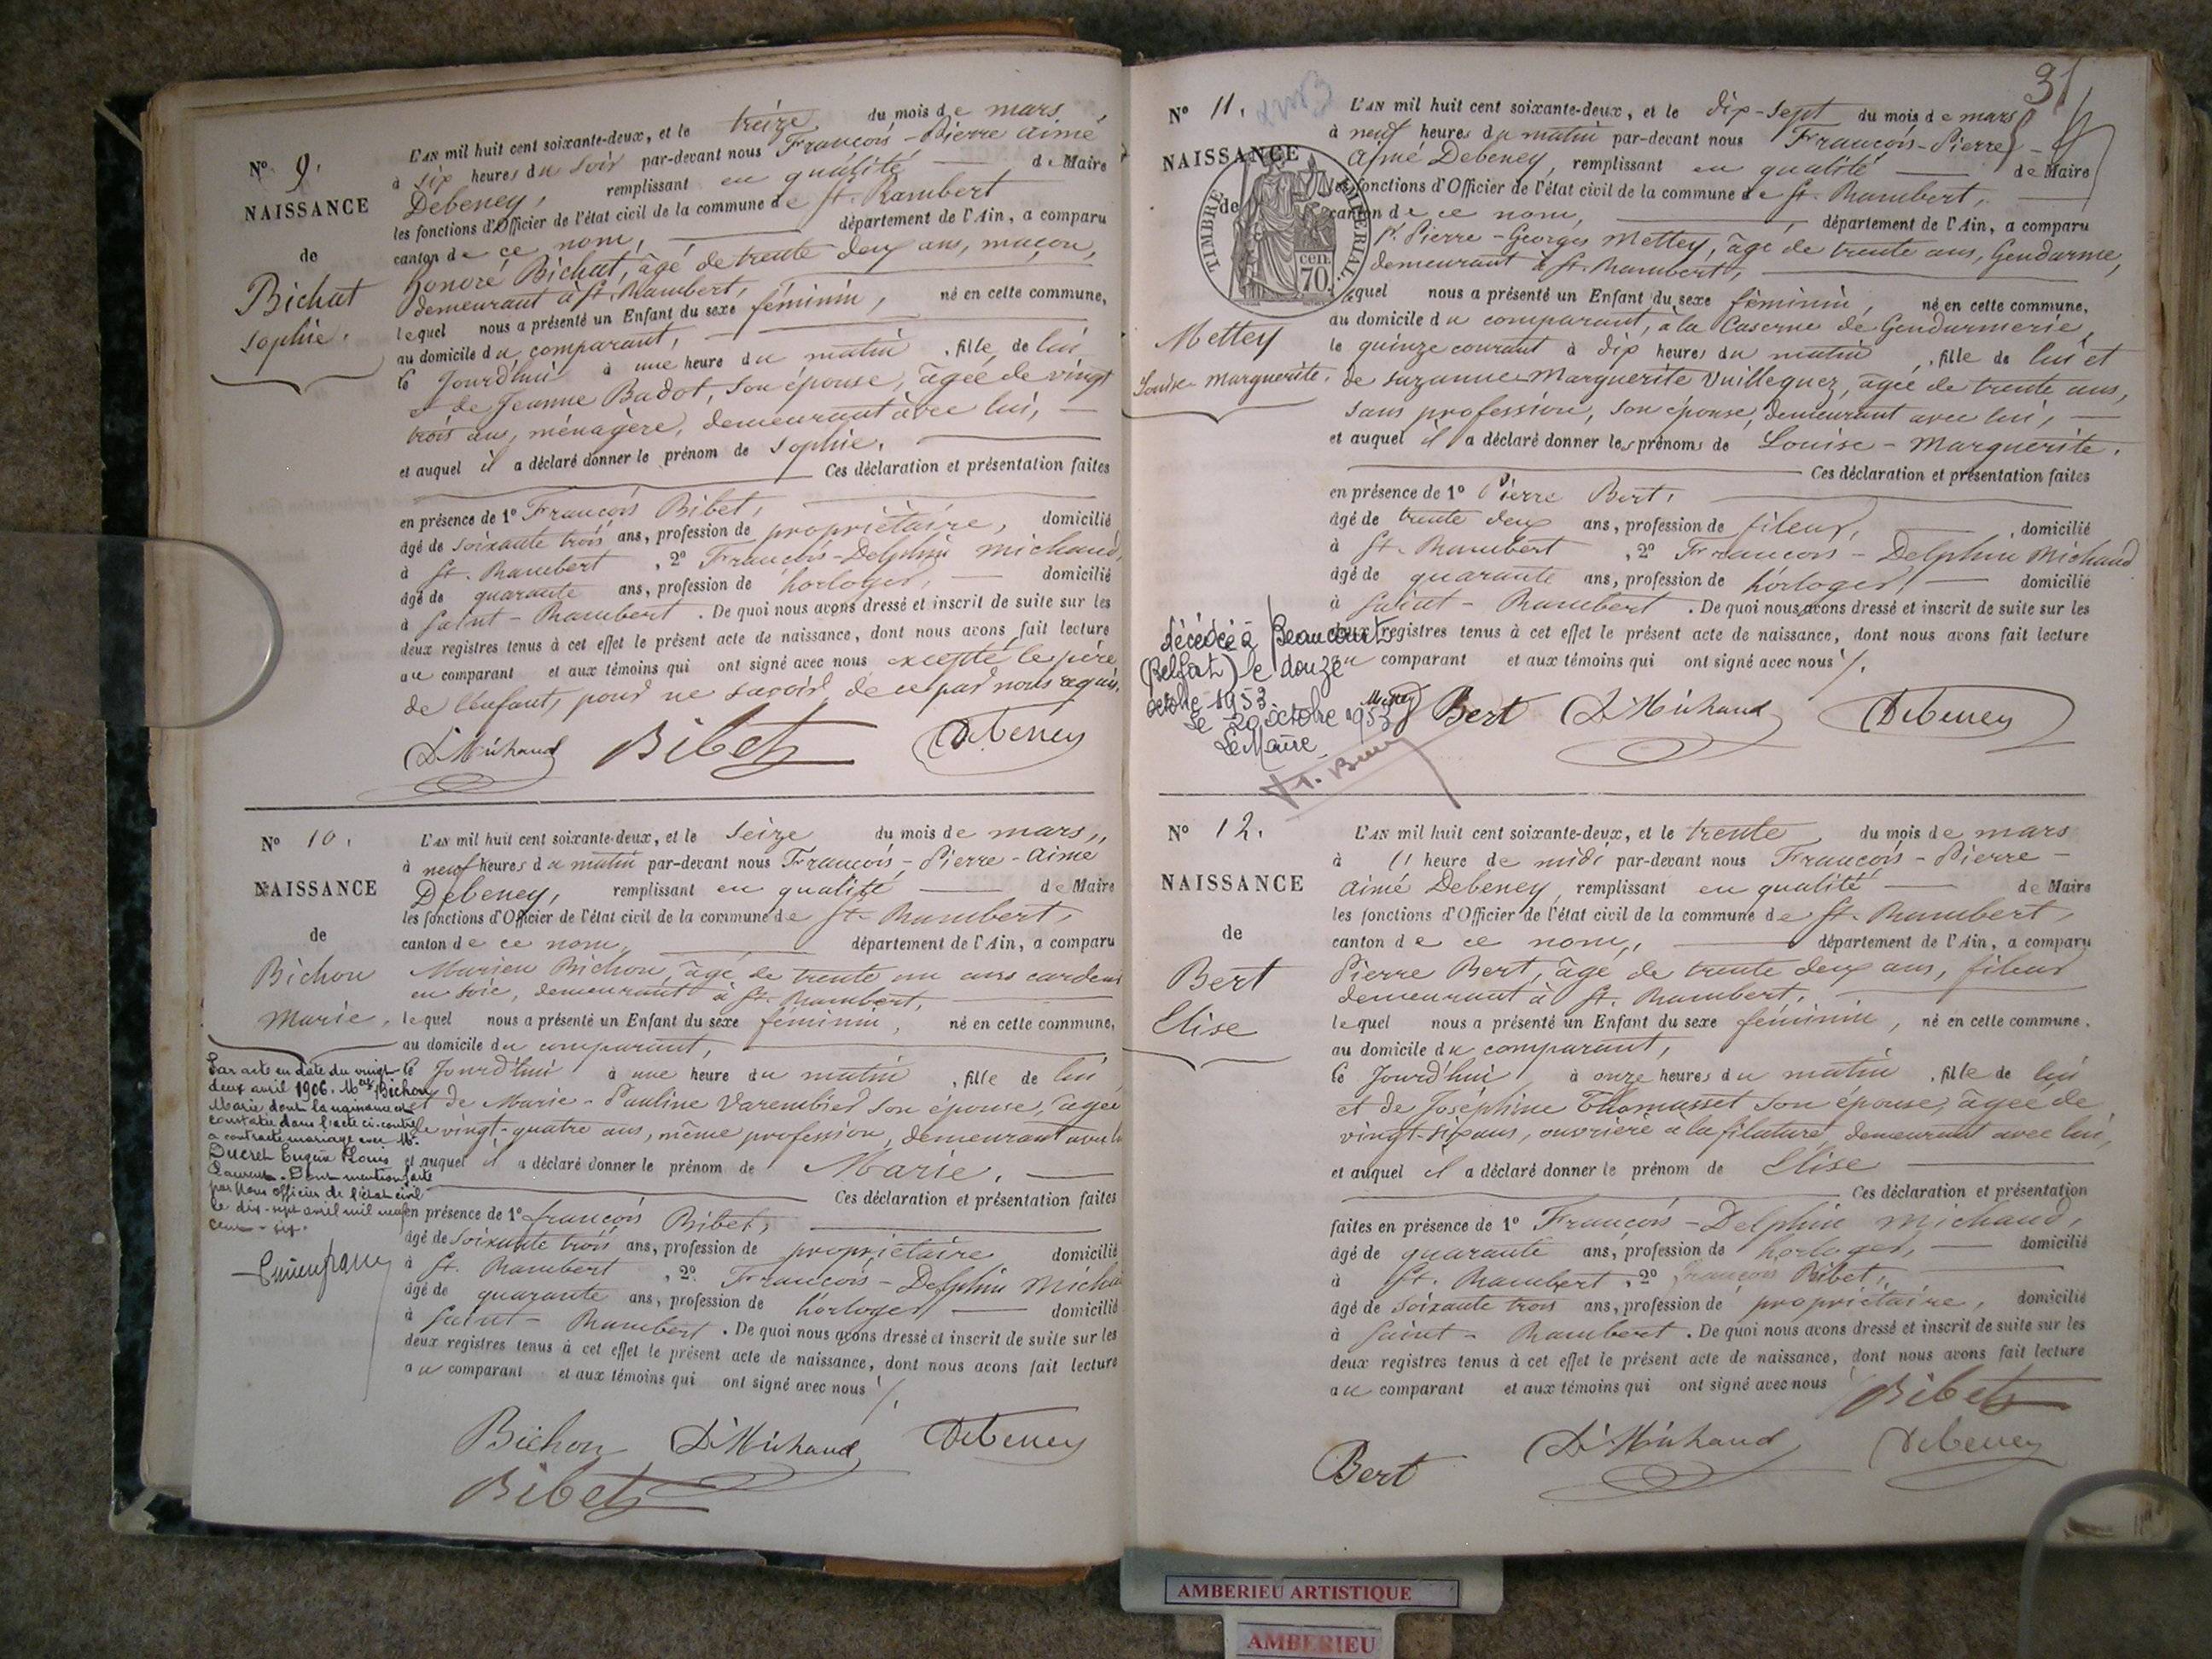 N° 9.
NAISSANCE
de
Bichat
Sophie.
L'AN mil huit cent soixante-deux, et le treize du mois de mars,
à six heures du soir par-devant nous François-Pierre Aimé
Debeney, remplissant en qualité de Maire
les fonctions d'Officier de l'état civil de la commune de St. Rambert
canton de ce nom, département de l'Ain, a comparu
honoré Bichat, âgé de trente deux ans, maçon,
demeurant à St. Rambert,
lequel nous a présenté un Enfant du sexe féminin, né en cette commune,
au domicile du comparant,
le Jourd'hui à une heure du matin, fille de lui
et de Jeanne Badot, son épouse, âgée de vingt
trois ans, ménagère, demeurant avec lui,
et auquel il a déclaré donner le prénom de Sophie.
Ces déclaration et présentation faites
en présence de 1° François Bibet,
âgé de soixante trois ans, profession de propriétaire, domicilié
à St. Rambert, 2° François-Delphin Michaud,
âgé de quarante ans, profession de horloger, domicilié
à Saint-Rambert. De quoi nous avons dressé et inscrit de suite sur les
deux registres tenus à cet effet le présent acte de naissance, dont nous avons fait lecture
au comparant et aux témoins qui ont signé avec nous excepté le père
de l'enfant, pour ne savoir, de ce par nous requis.
D. Michaud Bibet Debeney
N° 10.
NAISSANCE
de
Bichon
Marie.
L'AN mil huit cent soixante-deux, et le seize du mois de mars,,
à neuf heures du matin par-devant nous François-Pierre-Aimé
Debeney, remplissant en qualité de Maire
les fonctions d'Officier de l'état civil de la commune de St. Rambert,
canton de ce nom, département de l'Ain, a comparu
Marien Bichon, âgé de trente un ans cardeur
en soie, demeurant à St. Rambert,
lequel nous a présenté un Enfant du sexe féminin, né en cette commune,
au domicile du comparant,
le Jourd'hui à une heure du matin, fille de lui
et de Marie-Pauline Varembier son épouse, âgée
de vingt-quatre ans, même profession, demeurant avec lui
et auquel il a déclaré donner le prénom de Marie.
Ces déclaration et présentation faites
en présence de 1° françois Bibet,
âgé de soixante trois ans, profession de propriétaire domicilié
à St. Rambert, 2° François-Delphin Michau
âgé de quarante ans, profession de horloger, domicilié
à Saint-Rambert. De quoi nous avons dressé et inscrit de suite sur les
deux registres tenus à cet effet le présent acte de naissance, dont nous avons fait lecture
au comparant et aux témoins qui ont signé avec nous ./.
Bichon D. Michaud Debeney
Bibet
Par acte en date du vingt
deux avril 1906. Melle Bichon
Marie dont la naissance est
constatée dans l'acte ci-contre
a contracté mariage avec Mr.
Ducret Eugène Louis
Laurent. Dont mention faite
par Nous officier de l'état civil
le dix-sept avril mil neuf
cent-six.
31
N° 11.
NAISSANCE
de
TIMBRE IMPERIAL
70 cen.
Mettey
Louise marguerite.
L'AN mil huit cent soixante-deux, et le dix-sept du mois de mars,
à neuf heures du matin par-devant nous François-Pierre-
Aimé Debeney, remplissant en qualité de Maire
les fonctions d'Officier de l'état civil de la commune de St. Rambert,
canton de ce nom, département de l'Ain, a comparu
Pierre-Georges Mettey, âgé de trente ans, Gendarme,
demeurant à St. Rambert,
lequel nous a présenté un Enfant du sexe féminin, né en cette commune,
au domicile du comparant, à la Caserne de Gendarmerie,
le quinze courant à dix heures du matin, fille de lui et
de Suzanne-Marguerite Vuillequez, âgée de trente ans,
sans profession, son épouse, demeurant avec lui,
et auquel il a déclaré donner les prénoms de Louise-Marguerite.
Ces déclaration et présentation faites
en présence de 1° Pierre Bert,
âgé de trente deux ans, profession de fileur, domicilié
à St. Rambert, 2° François-Delphin Michaud
âgé de quarante ans, profession de horloger, domicilié
à Saint-Rambert. De quoi nous avons dressé et inscrit de suite sur les
deux registres tenus à cet effet le présent acte de naissance, dont nous avons fait lecture
au comparant et aux témoins qui ont signé avec nous ./.
Mettey Bert D. Michaud Debeney
décédée à Beaucourt
(Belfort) le douze
octobre 1953
Le 20 octobre 1953
Le Maire
N° 12.
NAISSANCE
de
Bert
Elise
L'AN mil huit cent soixante-deux, et le trente du mois de mars
à l' heure de midi par-devant nous François-Pierre-
Aimé Debeney, remplissant en qualité de Maire
les fonctions d'Officier de l'état civil de la commune de St. Rambert,
canton de ce nom, département de l'Ain, a comparu
Pierre Bert, âgé de trente deux ans, fileur
demeurant à St. Rambert,
lequel nous a présenté un Enfant du sexe féminin, né en cette commune.
au domicile du comparant,
le Jourd'hui à onze heures du matin, fille de lui
et de Joséphine Thomasset son épouse, âgée de
vingt-six ans, ouvrière à la filature, demeurant avec lui,
et auquel il a déclaré donner le prénom de Elise
Ces déclaration et présentation
faites en présence de 1° François-Delphin Michaud,
âgé de quarante ans, profession de horloger, domicilié
à St. Rambert, 2° François Bibet,
âgé de soixante trois ans, profession de propriétaire, domicilié
à Saint-Rambert. De quoi nous avons dressé et inscrit de suite sur les
deux registres tenus à cet effet le présent acte de naissance, dont nous avons fait lecture
au comparant et aux témoins qui ont signé avec nous
Bibet
Bert D. Michaud Debeney
AMBERIEU ARTISTIQUE
AMBERIEU